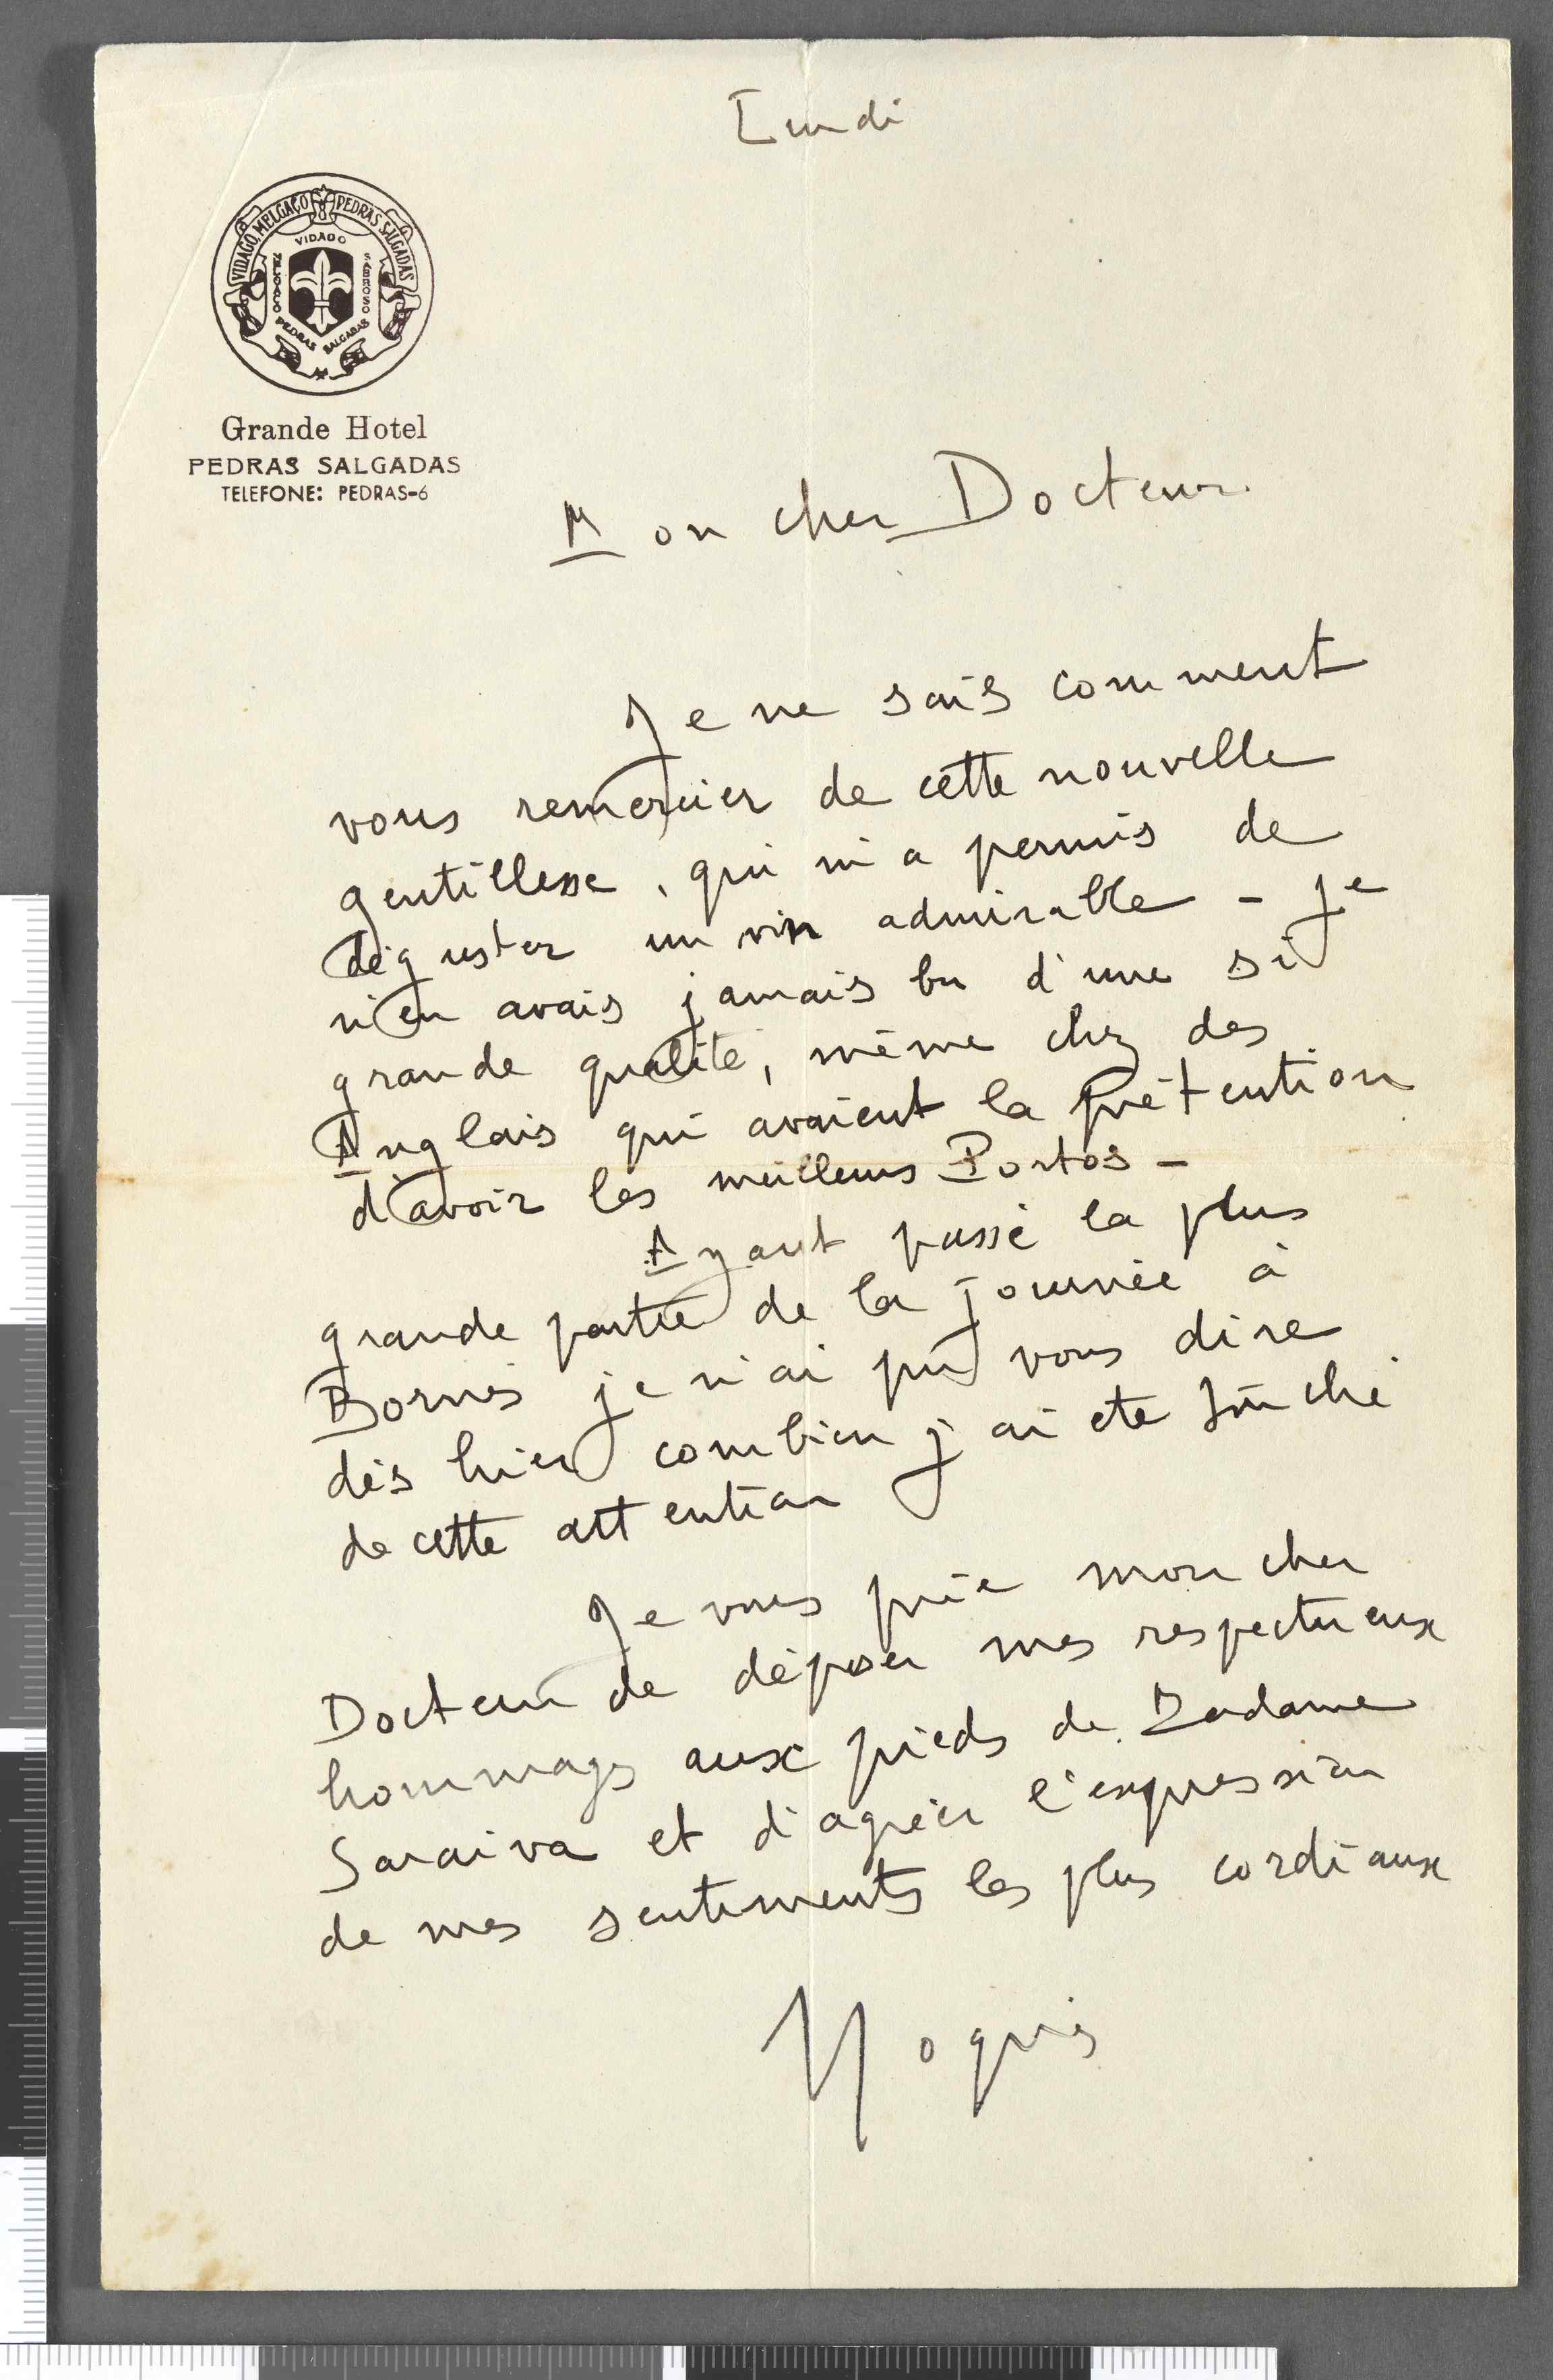 Lundi
VIDAGO, MELGAÇO & PEDRAS SALGADAS
VIDAGO
MELGAÇO
SABROSO
PEDRAS SALGADAS
Grande Hotel
PEDRAS SALGADAS
TELEFONE: PEDRAS-6
Mon cher Docteur
Je ne sais comment
vous remercier de cette nouvelle
gentillesse, qui m'a permis de
déguster un vin admirable - je
n'en avais jamais bu d'une si
grande qualité, même chez des
Anglais qui avaient la prétention
d'avoir les meilleurs Portos -
Ayant passé la plus
grande partie de la journée à
Bornes je n'ai pu vous dire
dès hier combien j'ai été touché
de cette attention
Je vous prie mon cher
Docteur de déposer mes respectueux
hommages aux pieds de Madame
Saraiva et d'agréer l'expression
de mes sentiments les plus cordiaux
Noguès